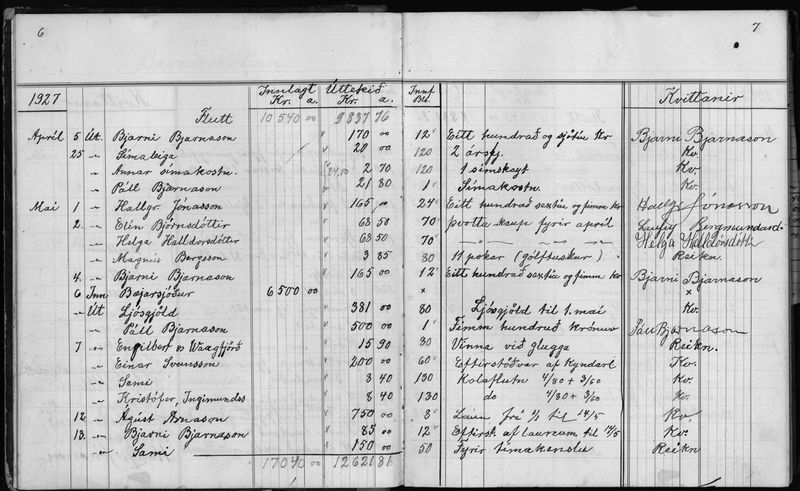 6
7
1927 Innlagt Kr. a. Úttekið Kr. a. Innf Bls. Kvittanir
Flutt 10540 00 9837 76
Apríl 5 Út. Bjarni Bjarnason 170 00 12 Eitt hundrað og sjötíu kr Bjarni Bjarnason
25 " Símaleiga 20 00 120 2 ársfj. Kv.
" Annar símakostn. 2 70 120 1 símskeyt Kv.
" Páll Bjarnason 21 80 1 Símakostn. Kv.
Mai 1 " Hallgr. Jónasson 165 00 24 Eitt hundrað sextíu og fimm kr Hallgr Jónasson
2 " Elín Björnsdóttir 68 50 70 Þvotta kaup fyrir apríl
" Helga Halldórsdóttir 68 50 70 " " " " " Helga Halldórsdóttir
" Magnús Bergsson 3 85 80 11 pokar (gólftuskur) Reikn.
4 " Bjarni Bjarnason 165 00 12 Eitt hundrað sextíu og fimm kr Bjarni Bjarnason
6 Inn Bæjarsjóður 6500 00 x x
" Út Ljósgjöld 381 00 80 Ljósgjöld til 1. mai Kv.
" Páll Bjarnason 500 00 1 Fimm hundruð krónur Páll Bjarnason
7 " Engilbert Waagfjörð 15 90 30 Vinna við glugga Reikn.
" Einar Svensson 200 00 60 Eftirstöðvar af kyndarl Kv.
" Sami 8 40 130 Kolaflutn 4/80 + 3/60 Kv.
" Kristófer, Ingimundss 8 40 130 do 4/80 + 3/60 Kv.
12 " Ágúst Árnason 750 00 8 Laun frá til 14/5 Kv
13 " Bjarni Bjarnason 85 00 12 Eftirst af launum til Kv.
" Sami 150 00 50 Fyrir tímakenslu Reikn
17040 00 12621 81